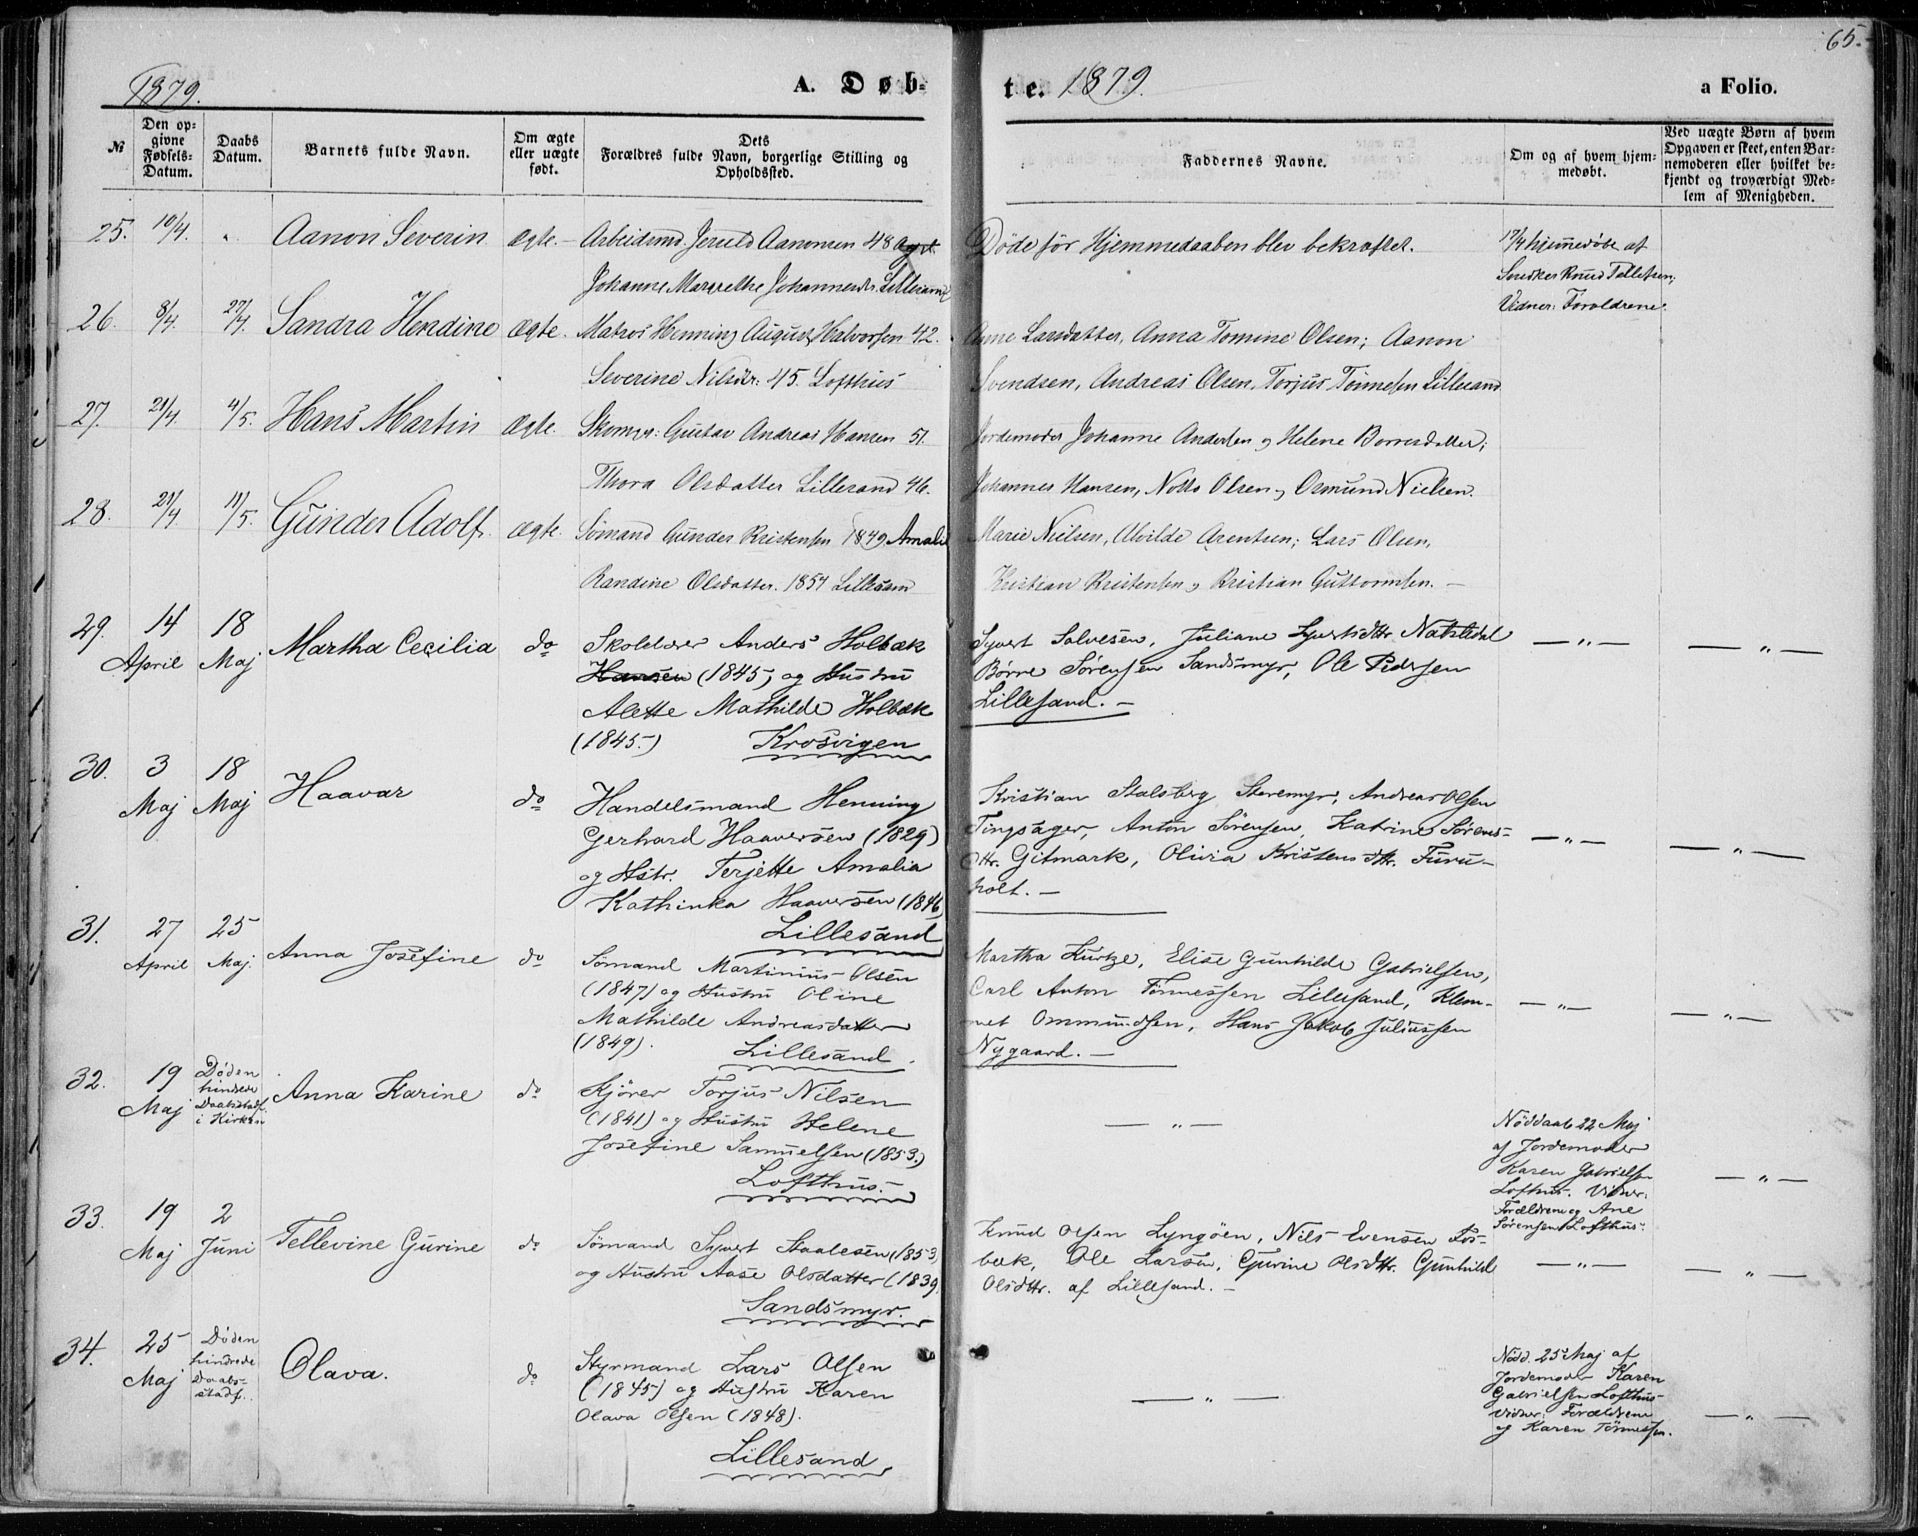 65.
1879.
A. Døb-
te. 1879.
a Folio.
№
Den op-
givne
Fødsels-
Datum.
Daabs
Datum.
Barnets fulde Navn.
Om ægte
eller uægte
født.
Dets
Forældres fulde Navn, borgerlige Stilling og
Opholdssted.
Faddernes Navne.
Om og af hvem hjem-
medøbt.
Ved uægte Børn af hvem
Opgaven er skeet, enten Bar-
nemoderen eller hvilket be-
kjendt og troværdigt Med-
lem af Menigheden.
25.
10/4.
"
Aanon Severin
Ægte.
Arbeidsmd. Aanonsen 48
Johanne Margrethe
Døde før Hjemmedaaben blev bekræftet.
hjemmedøbt af
Snedker Knud Tellefsen;
Vidner: Forældrene.
26.
8/4.
27/4.
Sandra Hendine
Ægte.
Matros Henning August Halvorsen 42.
Severine Nilsdtr: 45. Lofthus
Anne Larsdatter, Anna Tomine Olsen; Aanon
Svendsen, Andreas Olsen, Torjus Tønnesen Lillesand
27.
21/4.
4/5.
Hans Martin
Ægte.
Skomgr: Gustav Andreas Hansen 51.
Thora Olsdatter Lillesand 46.
Jordemoder Johanne Andersen og Helene Borresdatter;
Johannes Hansen, Notto Olsen og Osmund Nielsen.
28.
21/4
11/5.
Gunder Adolf.
Ægte.
Sømand Gunder Kristensen 1849 Amalie
Randine Olsdatter. 1854 Lillesand
Marie Nielsen, Alvilde Arentsen; Lars Olsen,
Kristian Kristensen og Kristian Guttormsen. —
29.
14
April
18
Maj
Martha Cecilia
do
Skolelærer Anders Holbæk
Hansen (1845) og Hustru
Alette Mathilde Holbæk
(1845.) Krosvigen
Syvert Salvesen, Juliane Syvertsdtr. Natvedal
Børre Sørensen Sandsmyr, Ole Pedersen
Lillesand. —
— " —
— " —
30.
3
Maj
18
Maj
Haavar
do
Handelsmand Henning
Gerhard Haaversen (1829)
og Hstr. Terjette Amalia
Kathinka Haaversen (1846)
Lillesand
Kristian Stalsberg Storemyr, Andreas Olsen
Tingsager, Anton Sørensen, Katrine Sørens-
dtr. Gitmark, Olivia Kristensdtr. Furu-
holt. —
— " —
— " —
31.
27
April
25
Maj.
Anna Josefine
do
Sømand Martinius Olsen
(1847) og Hustru Oline
Mathilde Andreasdatter
(1849). Lillesand.
Martha Kurtze, Elise Gunhilde Gabrielsen,
Carl Anton Tønnessen Lillesand, Klem-
met Ommundsen, Hans Jakob Juliussen
Nygaard. —
— " —
— " —
32.
19
Maj
Døden
hindrede
Daabsstadf.
i Kirken
Anna Karine
do
Kjører Torjus Nilsen
(1841) og Hustru Helene
Josefine Samuelsen (1853.)
Lofthus.
— " —
Nøddaab 22 Maj
af Jordemoder
Karen Gabrielsen
Lofthus. Vidner:
Forældrene og Ane
Sørensen Lofthus.
— " —
33.
19
Maj
2
Juni
Tellevine Gurine
do
Sømand Syvert Staalesen (1853)
og Hustru Aase Olsdatter (1839)
Sandsmyr.
Knud Olsen Lyngöen, Nils Evensen Fos-
bæk, Ole Larsen, Gurine Olsdtr. Gunhild
Olsdtr. af Lillesand. —
— " —
— " —
34.
25
Maj
Døden
hindrede
Daabs-
stadf.
Olava.
do
Styrmand Lars Olsen
(1845) og Hustru Karen
Olava Olsen (1848).
Lillesand
— " —
Nødd. 25 Maj af
Jordemoder Karen
Gabrielsen Lofthus
Vidner: Forældrene
og Karen Tønnessen.
— " —